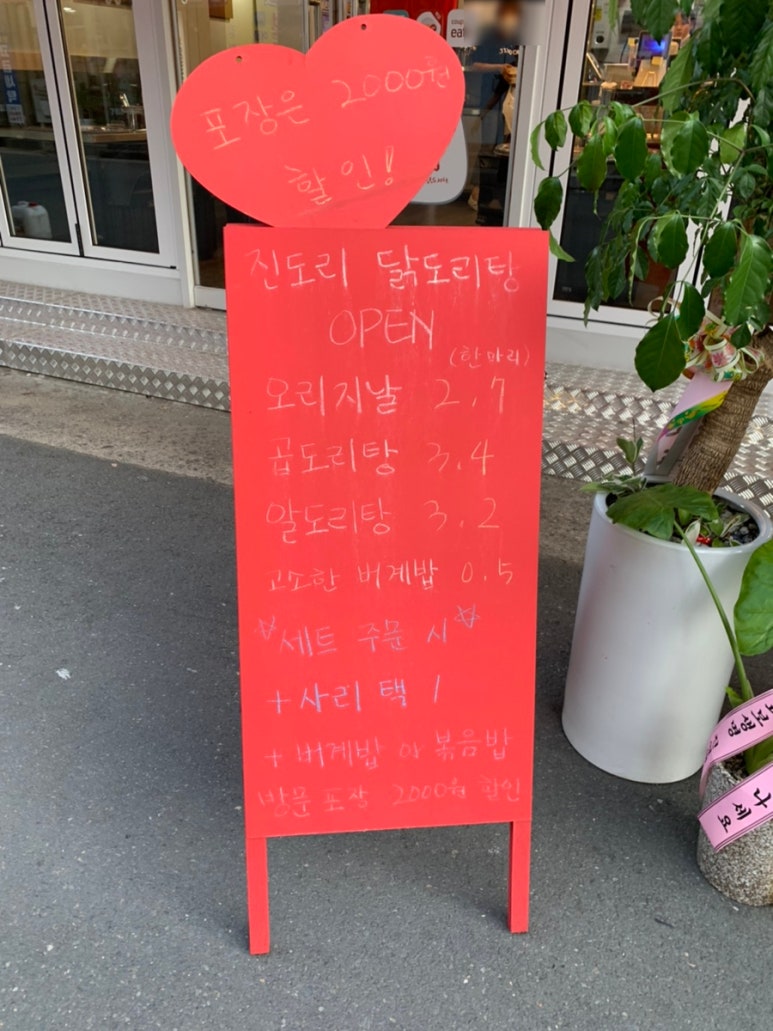 포장은 2000원
할인!
진도리 닭도리탕
OPEN
(한마리)
오리지날 2.7
곱도리탕 3.4
알도리탕 3.2
고소한 버계밥 0.5
☆세트 주문 시☆
+ 사리 택 1
+ 버계밥 or 볶음밥
방문 포장 2000원 할인
나세요